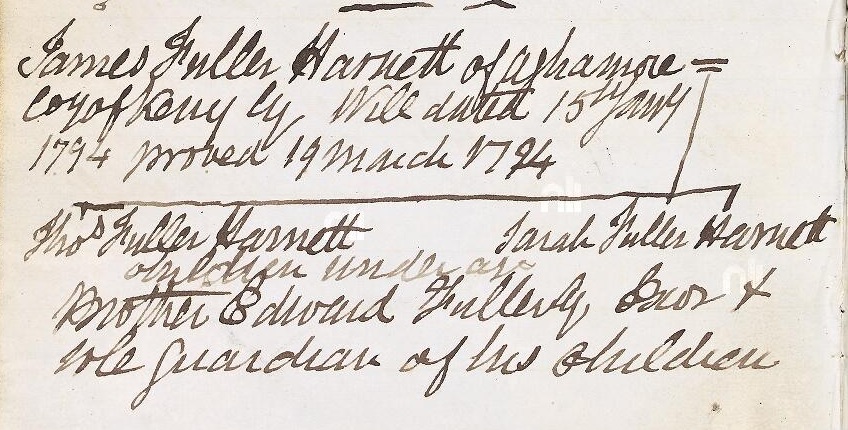 James Fuller Harnett of Aghamore =
Coy of Kerry Gt, Will dated 15th Jany
1794 proved 19 March 1794
Thos Fuller Harnett Sarah Fuller Harnett
children under age
Brother Edward Fuller Exor &
sole guardian of his children